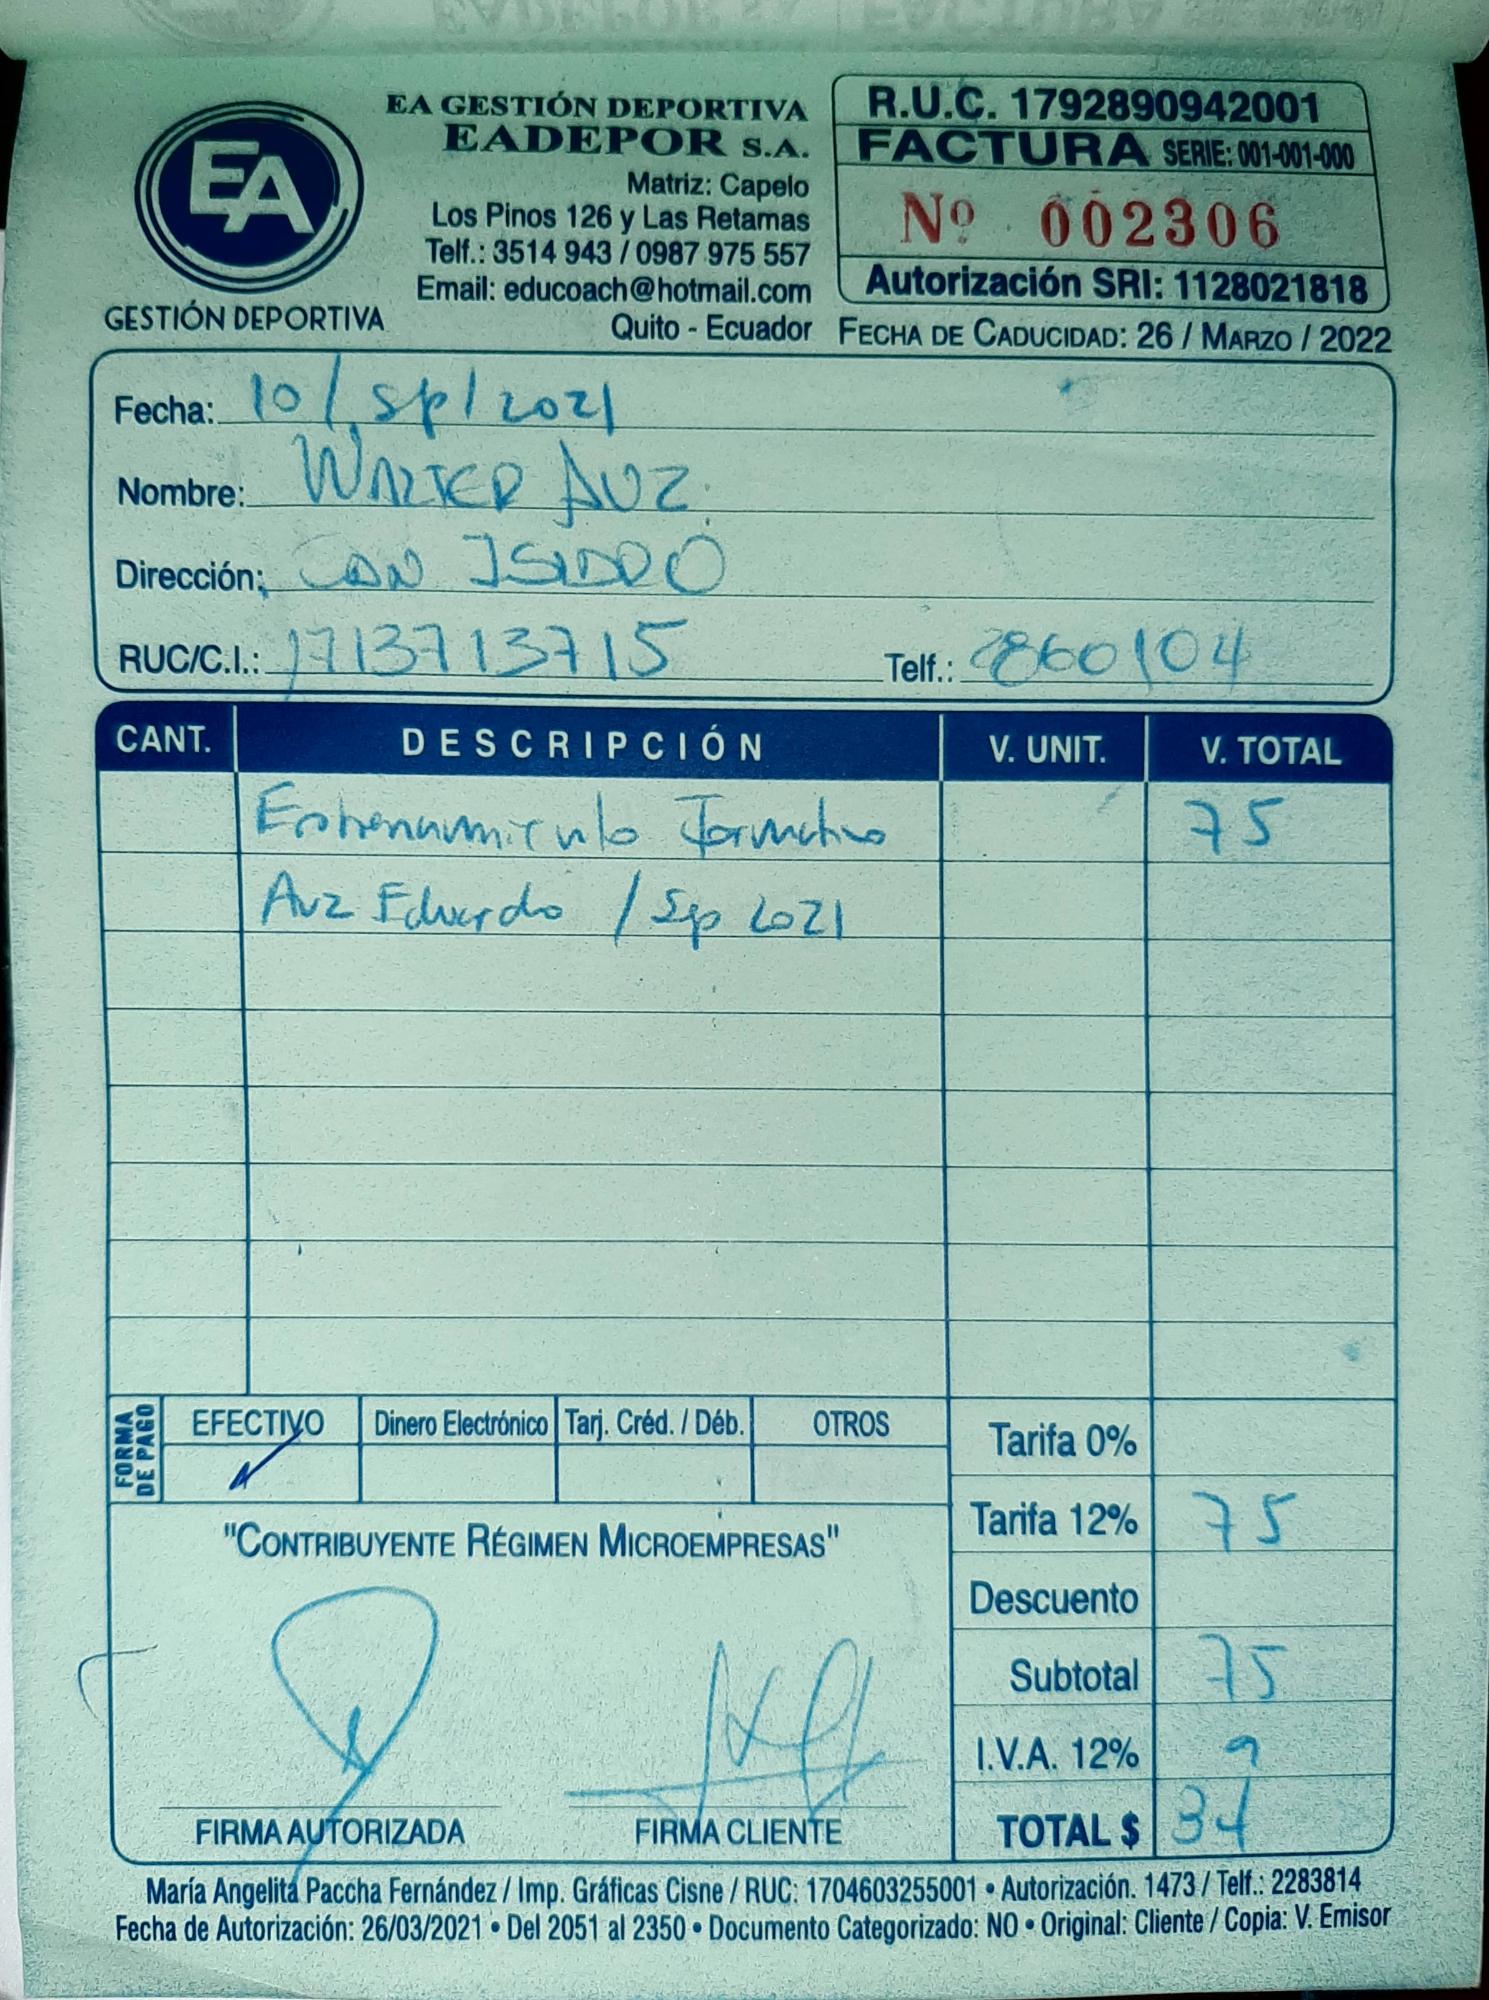 EA GESTIÓN DEPORTIVA
EADEPOR S.A.
Matriz: Capelo
Los Pinos 126 y Las Retamas
Telf.: 3514 943 / 0987 975 557
Email: educoach@hotmail.com
Quito - Ecuador
EA
GESTIÓN DEPORTIVA
R.U.C. 1792890942001
FACTURA SERIE: 001-001-000
Nº 002306
Autorización SRI: 1128021818
FECHA DE CADUCIDAD: 26 / MARZO / 2022
Fecha: 10/sp/2021
Nombre: WALTER AUZ
Dirección: SAN ISIDRO
RUC/C.I.: 1713713715 Telf.: 2860104
CANT. DESCRIPCIÓN V. UNIT. V. TOTAL
Entrenamiento Formativo 75
Auz Eduardo / Sep 2021
FORMA DE PAGO
EFECTIVO Dinero Electrónico Tarj. Créd. / Déb. OTROS
Tarifa 0%
Tarifa 12% 75
Descuento
Subtotal 75
I.V.A. 12% 9
TOTAL $ 84
"CONTRIBUYENTE RÉGIMEN MICROEMPRESAS"
FIRMA AUTORIZADA FIRMA CLIENTE
María Angelita Paccha Fernández / Imp. Gráficas Cisne / RUC: 1704603255001 • Autorización. 1473 / Telf.: 2283814
Fecha de Autorización: 26/03/2021 • Del 2051 al 2350 • Documento Categorizado: NO • Original: Cliente / Copia: V. Emisor